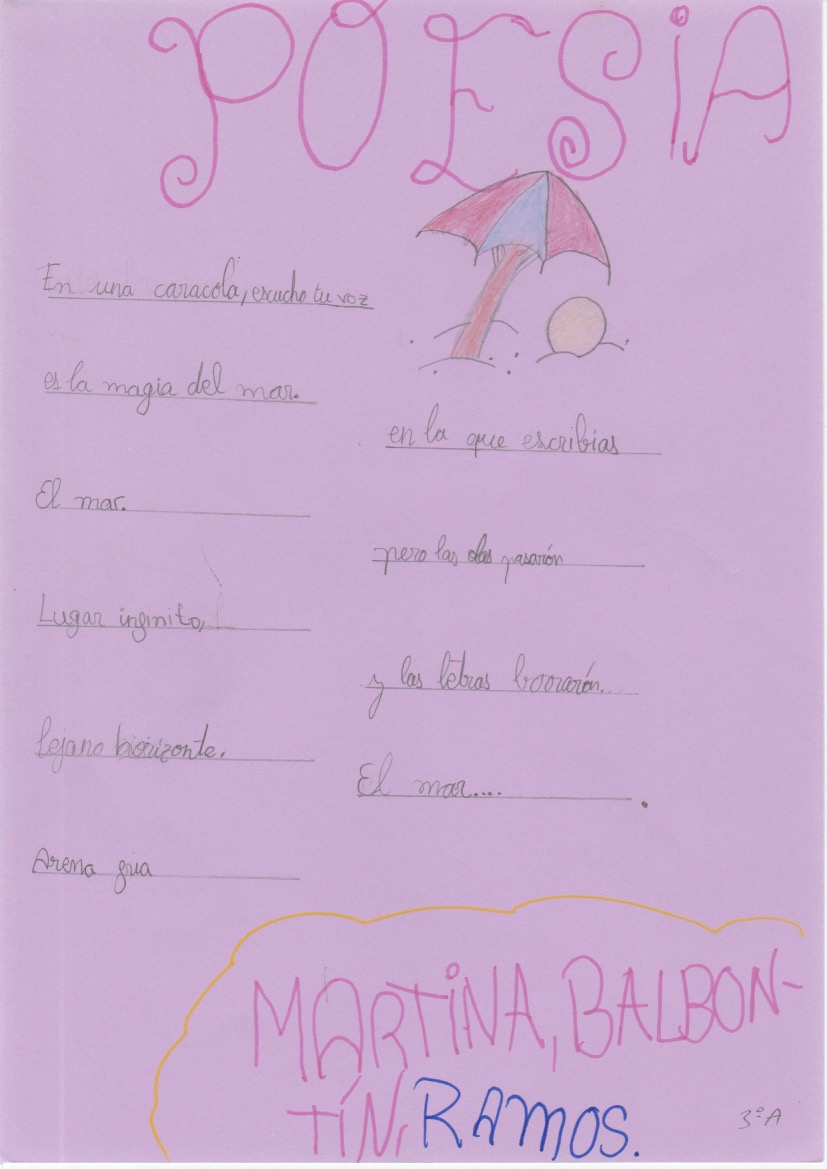 POESIA
En una caracola, escucho tu voz
es la magia del mar.
El mar.
Lugar infinito,
lejano horizonte.
Arena fria
en la que escribias
pero las olas pasarón
y las letras borrarón...
El mar....
MARTINA, BALBON-
TÍN, RAMOS.
3º A